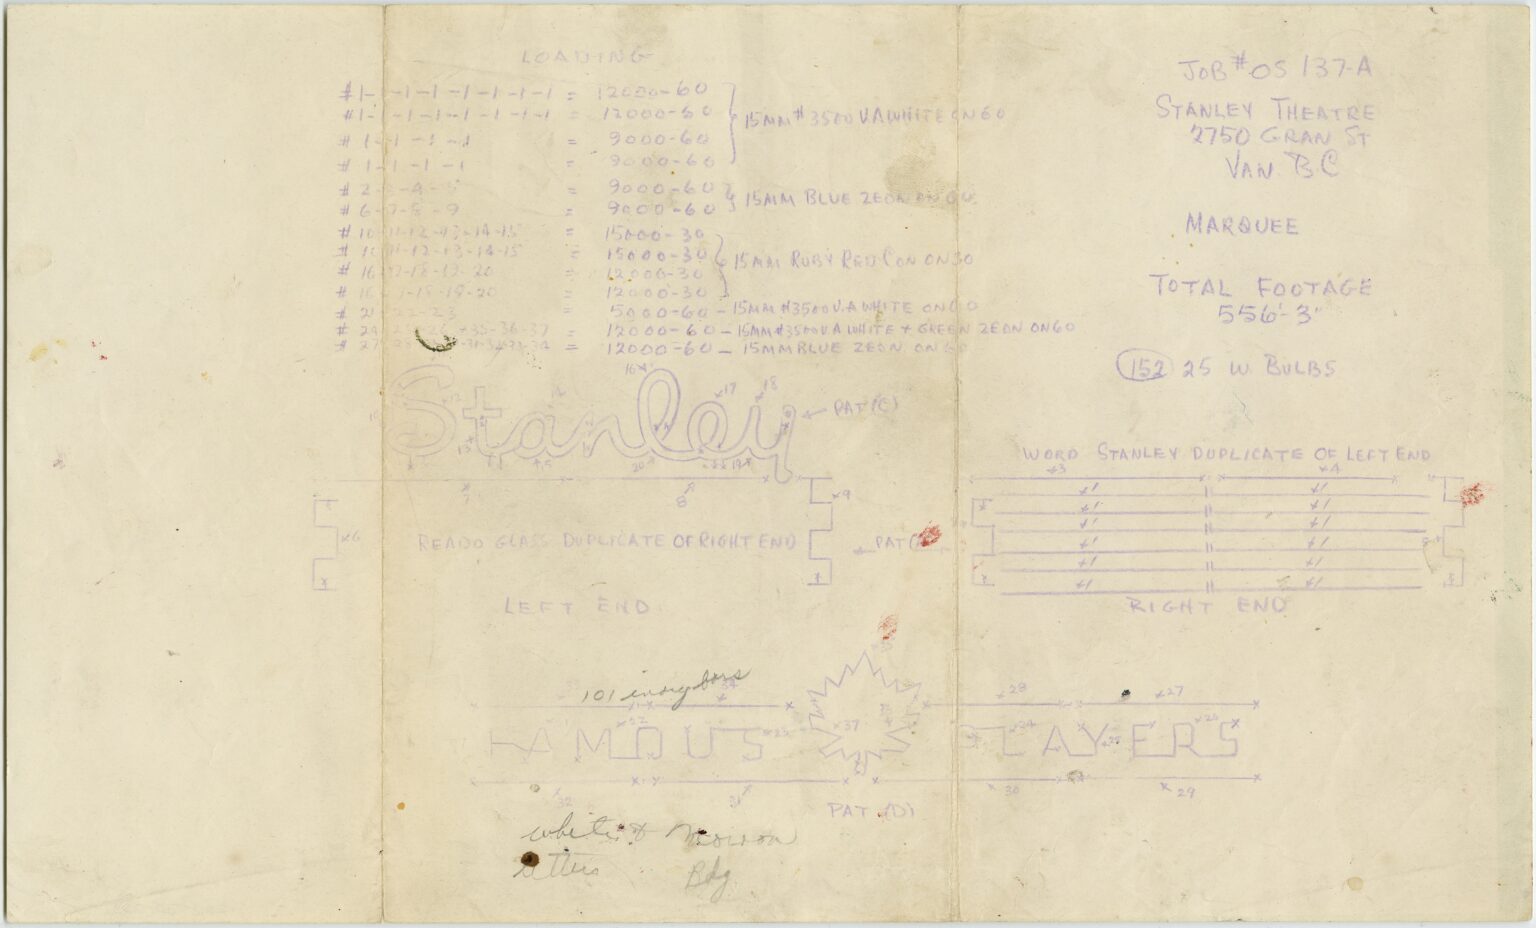 LOADING
#1-1-1-1-1-1-1-1 = 12000-60
#1-1-1-1-1-1-1-1 = 12000-60
15MM #3500 V.A WHITE ON 60
# 1-1-1-1-1 = 9000-60
# 1-1-1-1-1 = 9000-60
# 2-3-4-5 = 9000-60
# 6-7-8-9 = 9000-60
15MM BLUE ZEON ON 60
# 10-11-12-13-14-15 = 15000-30
# 10-11-12-13-14-15 = 15000-30
15MM RUBY RED CON ON 30
# 16-17-18-19-20 = 12000-30
# 16-17-18-19-20 = 12000-30
# 21-22-23 = 5000-60 - 15MM #3500 V.A WHITE ON 60
# 24-25-26 35-36-37 = 12000-60 - 15MM #3500 V.A WHITE + GREEN ZEON ON 60
# 27 = 12000-60 - 15MM BLUE ZEON ON 60
JOB # OS 137-A
STANLEY THEATRE
2750 GRAN ST
VAN BC
MARQUEE
TOTAL FOOTAGE
556'-3"
152 25 W. BULBS
16 17 18
Stanley
PAT (C)
20 19
7 8 9
6
READO GLASS DUPLICATE OF RIGHT END
PAT
LEFT END
WORD STANLEY DUPLICATE OF LEFT END
3 4
1 1
1 1
1 1
1 1
1 1
1 1
RIGHT END
101
28 27
FAMOUS
37
PLAYERS
22 23 24 25 26
32 31 30 29
PAT (D)
white
Bdg